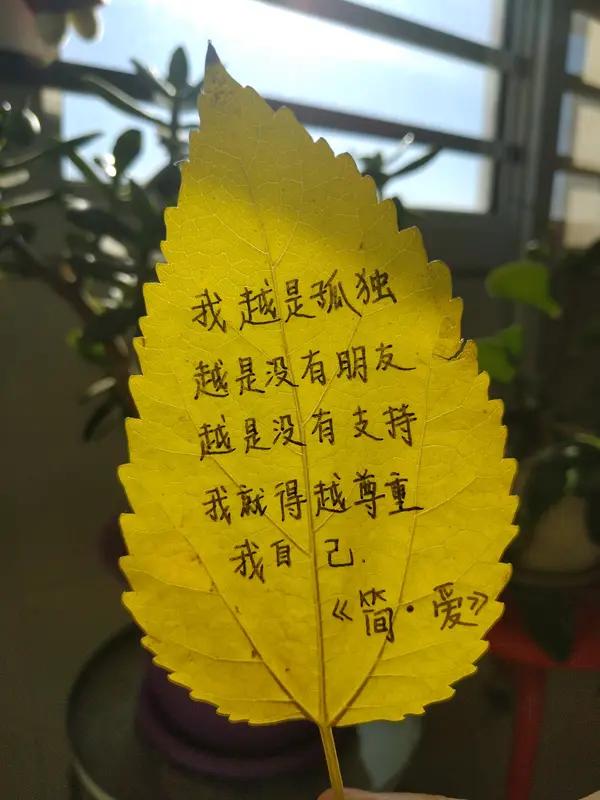 我越是孤独
越是没有朋友
越是没有支持
我就得越尊重
我自己.
《简·爱》